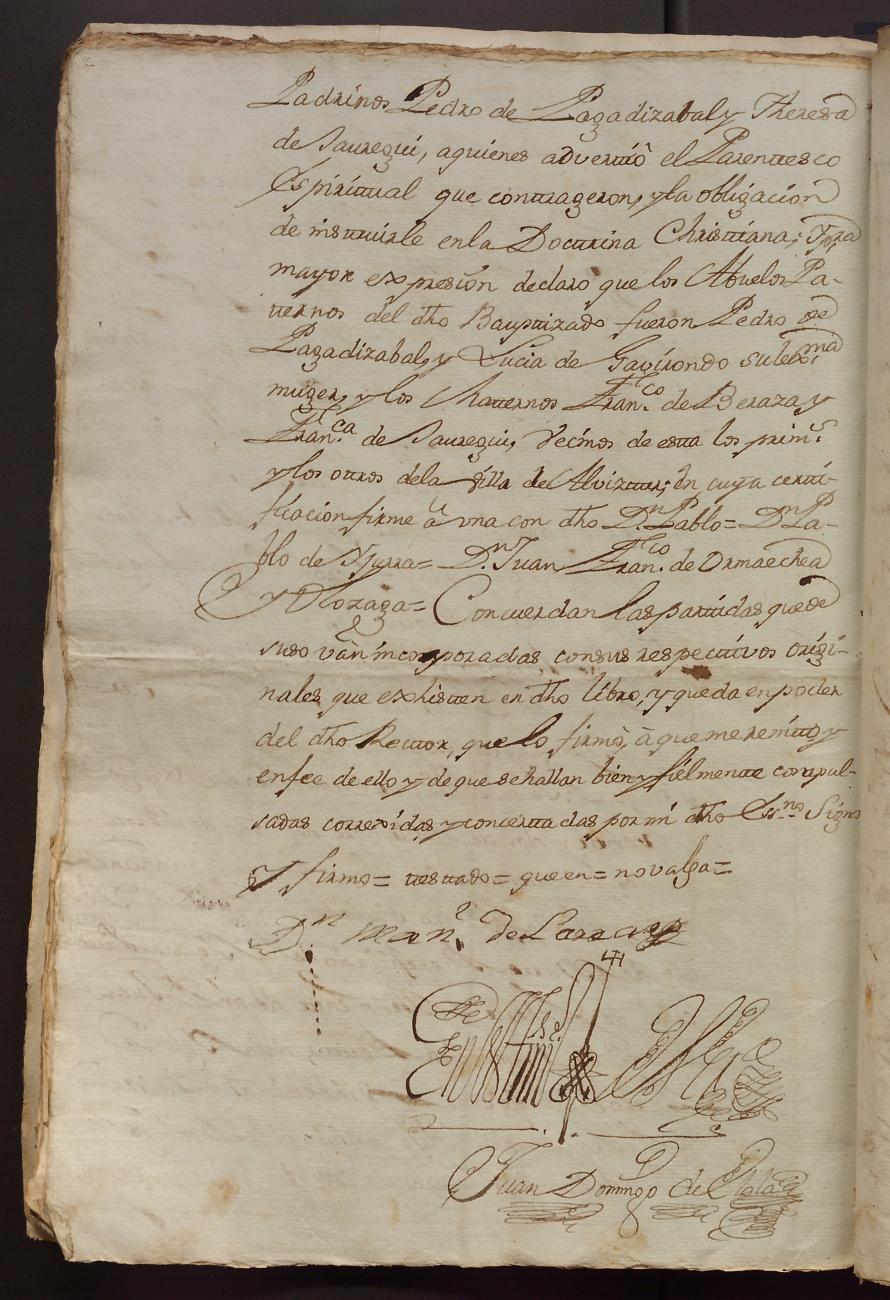 Padrinos Pedro de Pagadizabal y Theresa
de Jauregui, aquienes advertiô el Parentesco
Espiritual que contrageron, y la obligacion
de instruirle en la Doctrina Christiana; Y pra
mayor expresion declaro que los Abuelos Pa-
ternos del dho Bauptizado fueron Pedro de
Pagadizabal, y Lucia de Gavirondo su lexma
muger, y los Maternos Franco. de Beraza y
Franca. de Jauregui, vecinos de esta los prims.
y los otros de la villa de Alviztur; En cuya certi-
ficacion firme â vna con dho Dn. Pablo= Dn Pa-
blo de Yyurra= Dn. Juan Franco. de Ormaechea
y Olozaga= Concuerdan las partidas que de
suso vàn incorporadas consus respectivos origi-
nales que exhisten en dho libro, y queda en poder
del dho Rector, que lo firmò, à que me remito y
enfee de ello y de que se hallan bien y fielmente compul-
sadas correxidas y concertadas por mi dho Essno. Signo
Y firmo= testado= que en= no valga=
Dn Manl. de Larrar
En testimo
Juan Domingo de